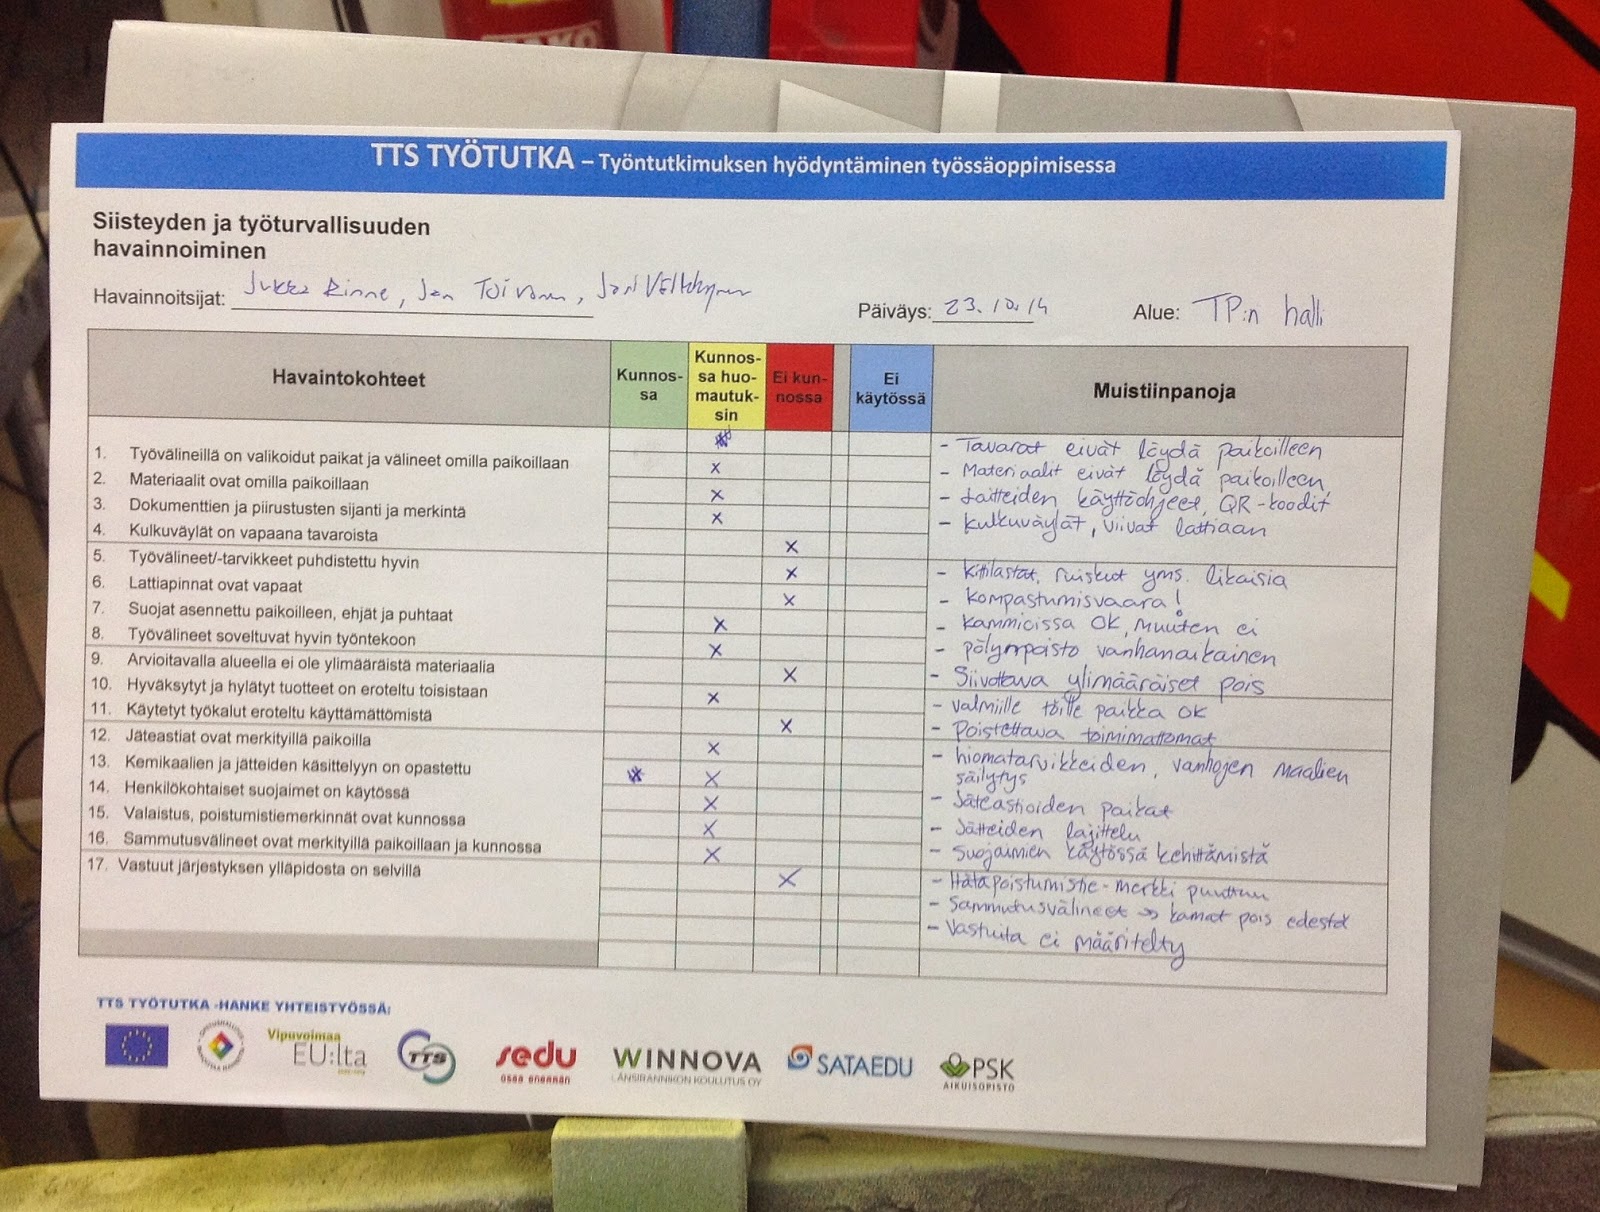 TTS TYÖTUTKA – Työntutkimuksen hyödyntäminen työssäoppimisessa
Siisteyden ja työturvallisuuden
havainnoiminen
Havainnoitsijat: Jukka Rinne, Jan Toivonen, Jari
Päiväys: 23.10.14
Alue: TP:n halli
Havaintokohteet
Kunnos-
sa
Kunnos-
sa huo-
mautuk-
sin
Ei kun-
nossa
Ei
käytössä
Muistiinpanoja
1. Työvälineillä on valikoidut paikat ja välineet omilla paikoillaan
2. Materiaalit ovat omilla paikoillaan
3. Dokumenttien ja piirustusten sijanti ja merkintä
4. Kulkuväylät on vapaana tavaroista
5. Työvälineet/-tarvikkeet puhdistettu hyvin
6. Lattiapinnat ovat vapaat
7. Suojat asennettu paikoilleen, ehjät ja puhtaat
8. Työvälineet soveltuvat hyvin työntekoon
9. Arvioitavalla alueella ei ole ylimääräistä materiaalia
10. Hyväksytyt ja hylätyt tuotteet on eroteltu toisistaan
11. Käytetyt työkalut eroteltu käyttämättömistä
12. Jäteastiat ovat merkityillä paikoilla
13. Kemikaalien ja jätteiden käsittelyyn on opastettu
14. Henkilökohtaiset suojaimet on käytössä
15. Valaistus, poistumistiemerkinnät ovat kunnossa
16. Sammutusvälineet ovat merkityillä paikoillaan ja kunnossa
17. Vastuut järjestyksen ylläpidosta on selvillä
- Tavarat eivät löydä paikoilleen
- Materiaalit eivät löydä paikoilleen
- Laitteiden käyttöohjeet, QR-koodit
- Kulkuväylät, viivat lattiaan
- Kittilastat, ruiskut yms. likaisia
- Kompastumisvaara!
- Kammioissa OK, muuten ei
- pölynpoisto vanhanaikainen
- Siivottava ylimääräiset pois
- Valmiille töille paikka OK
- Poistettava toimimattomat
- hiomatarvikkeiden, vanhojen maalien
säilytys
- Jäteastioiden paikat
- Jätteiden lajittelu
- Suojaimien käytössä kehittämistä
- Hätäpoistumistie-merkki puuttuu
- Sammutusvälineet → kamat pois edestä
- Vastuita ei määritelty
TTS TYÖTUTKA -HANKE YHTEISTYÖSSÄ:
Vipuvoimaa
EU:lta
TTS
sedu
osaa enemmän
WINNOVA
LÄNSIRANNIKON KOULUTUS OY
SATAEDU
PSK
AIKUISOPISTO